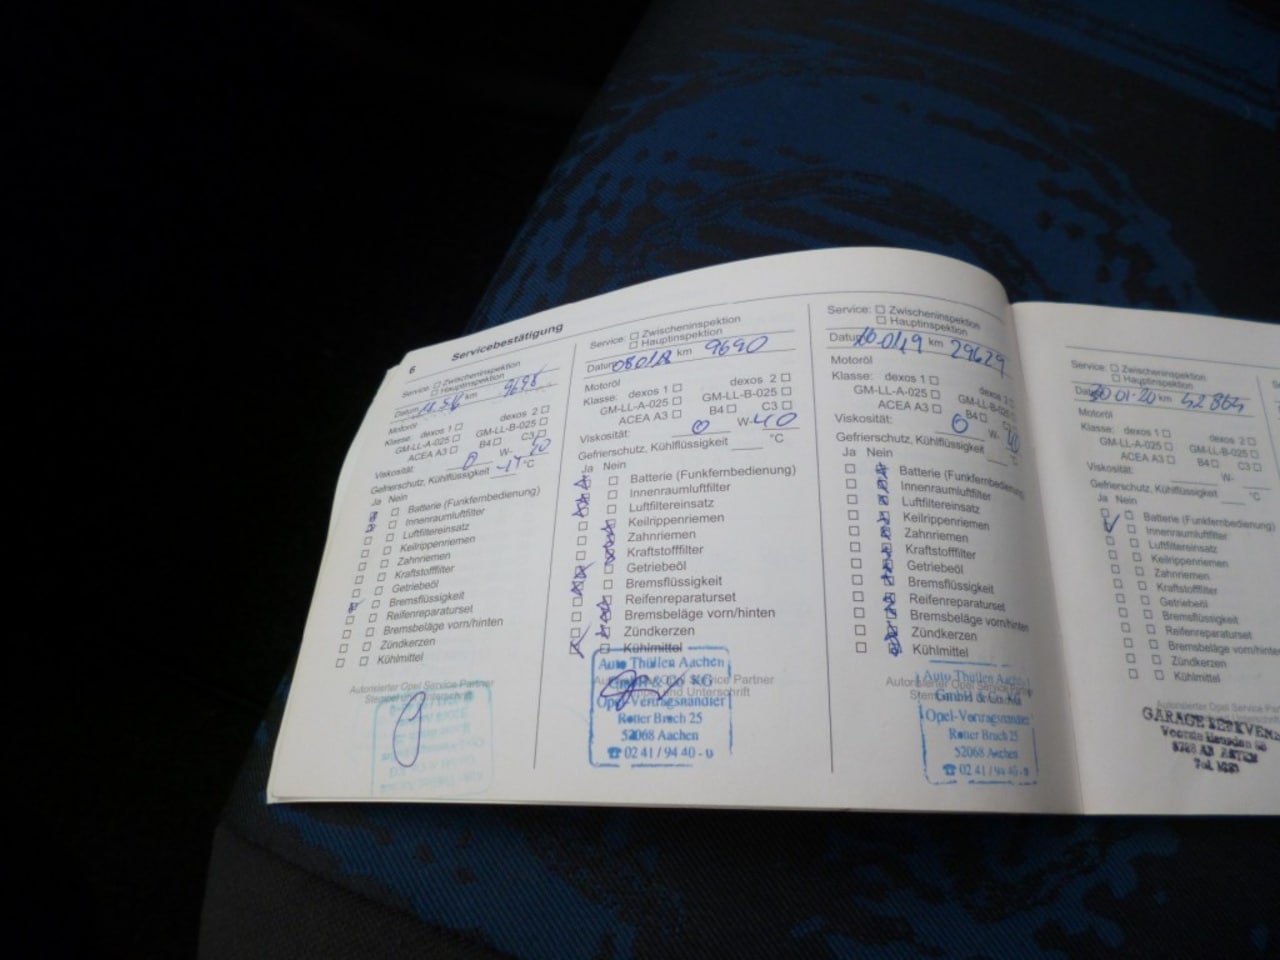 6
Servicebestätigung
Service: ☐ Zwischeninspektion
☐ Hauptinspektion
Datum km
Motoröl
Klasse: dexos 1 ☐ dexos 2 ☐
GM-LL-A-025 ☐ GM-LL-B-025 ☐
ACEA A3 ☐ B4 ☐ C3 ☐
Viskosität: 0 W-
Gefrierschutz, Kühlflüssigkeit °C
Ja Nein
Batterie (Funkfernbedienung)
Innenraumluftfilter
Luftfiltereinsatz
Keilrippenriemen
Zahnriemen
Kraftstofffilter
Getriebeöl
Bremsflüssigkeit
Reifenreparaturset
Bremsbeläge vorn/hinten
Zündkerzen
Kühlmittel
Autorisierter Opel Service Partner
Service: ☐ Zwischeninspektion
☐ Hauptinspektion
Datum km 9690
Motoröl
Klasse: dexos 1 ☐ dexos 2 ☐
GM-LL-A-025 ☐ GM-LL-B-025 ☐
ACEA A3 ☐ B4 ☐ C3 ☐
Viskosität: 0 W-40
Gefrierschutz, Kühlflüssigkeit °C
Ja Nein
Batterie (Funkfernbedienung)
Innenraumluftfilter
Luftfiltereinsatz
Keilrippenriemen
Zahnriemen
Kraftstofffilter
Getriebeöl
Bremsflüssigkeit
Reifenreparaturset
Bremsbeläge vorn/hinten
Zündkerzen
Kühlmittel
Auto Thüllen Aachen
GmbH & Co. KG
Opel-Vertragshändler
Rotter Bruch 25
52068 Aachen
☎ 02 41 / 94 40 - 0
Service: ☐ Zwischeninspektion
☐ Hauptinspektion
Datum km 29629
Motoröl
Klasse: dexos 1 ☐ dexos
GM-LL-A-025 ☐ GM-LL-B-025
ACEA A3 ☐ B4 ☐
Viskosität: 0 W-
Gefrierschutz, Kühlflüssigkeit
Ja Nein
Batterie (Funkfernbedienung)
Innenraumluftfilter
Luftfiltereinsatz
Keilrippenriemen
Zahnriemen
Kraftstofffilter
Getriebeöl
Bremsflüssigkeit
Reifenreparaturset
Bremsbeläge vorn/hinten
Zündkerzen
Kühlmittel
Auto Thüllen Aachen
GmbH & Co. KG
Opel-Vertragshändler
Rotter Bruch 25
52068 Aachen
☎ 02 41 / 94 40 - 0
Service: ☐ Zwischeninspektion
☐ Hauptinspektion
Datum 20 01-20 km
Motoröl
Klasse: dexos 1 ☐ dexos 2 ☐
GM-LL-A-025 ☐ GM-LL-B-025 ☐
ACEA A3 ☐ B4 ☐ C3 ☐
Viskosität: W-
Gefrierschutz, Kühlflüssigkeit °C
Ja Nein
Batterie (Funkfernbedienung)
Innenraumluftfilter
Luftfiltereinsatz
Keilrippenriemen
Zahnriemen
Kraftstofffilter
Getriebeöl
Bremsflüssigkeit
Reifenreparaturset
Bremsbeläge vorn/hinten
Zündkerzen
Kühlmittel
GARAGE